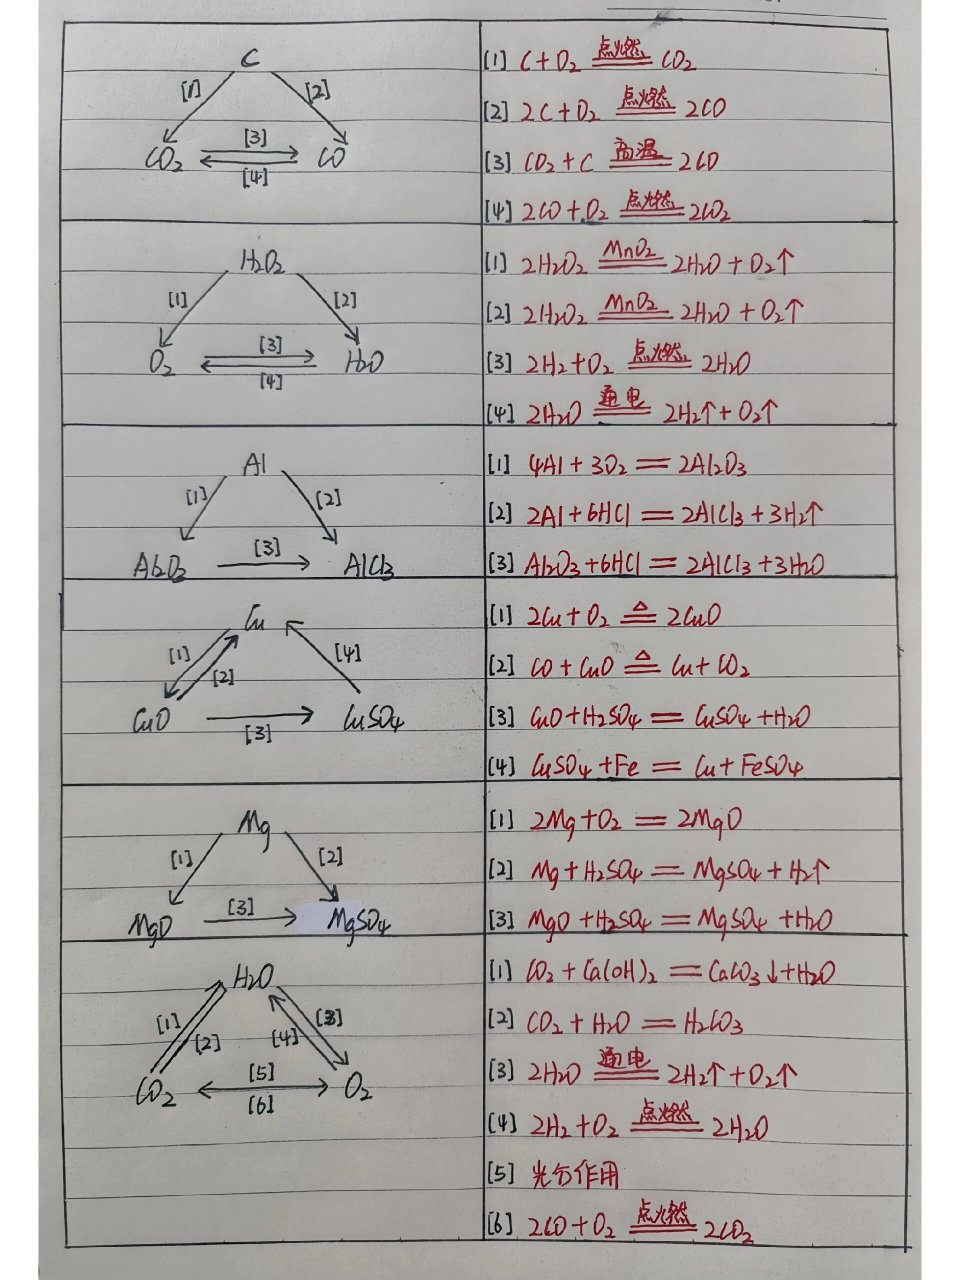 C
[1] [2]
CO₂ [3] CO
[4]
[1] C + O₂ 点燃 CO₂
[2] 2C + O₂ 点燃 2CO
[3] CO₂ + C 高温 2CO
[4] 2CO + O₂ 点燃 2CO₂
H₂O₂
[1] [2]
O₂ [3] H₂O
[4]
[1] 2H₂O₂ MnO₂ 2H₂O + O₂↑
[2] 2H₂O₂ MnO₂ 2H₂O + O₂↑
[3] 2H₂ + O₂ 点燃 2H₂O
[4] 2H₂O 通电 2H₂↑ + O₂↑
Al
[1] [2]
Al₂O₃ [3] AlCl₃
[1] 4Al + 3O₂ = 2Al₂O₃
[2] 2Al + 6HCl = 2AlCl₃ + 3H₂↑
[3] Al₂O₃ + 6HCl = 2AlCl₃ + 3H₂O
Cu
[1] [2] [4]
CuO [3] CuSO₄
[1] 2Cu + O₂ △ 2CuO
[2] CO + CuO △ Cu + CO₂
[3] CuO + H₂SO₄ = CuSO₄ + H₂O
[4] CuSO₄ + Fe = Cu + FeSO₄
Mg
[1] [2]
MgO [3] MgSO₄
[1] 2Mg + O₂ = 2MgO
[2] Mg + H₂SO₄ = MgSO₄ + H₂↑
[3] MgO + H₂SO₄ = MgSO₄ + H₂O
H₂O
[1] [2] [4] [3]
CO₂ [5] O₂
[6]
[1] CO₂ + Ca(OH)₂ = CaCO₃↓ + H₂O
[2] CO₂ + H₂O = H₂CO₃
[3] 2H₂O 通电 2H₂↑ + O₂↑
[4] 2H₂ + O₂ 点燃 2H₂O
[5] 光合作用
[6] 2CO + O₂ 点燃 2CO₂